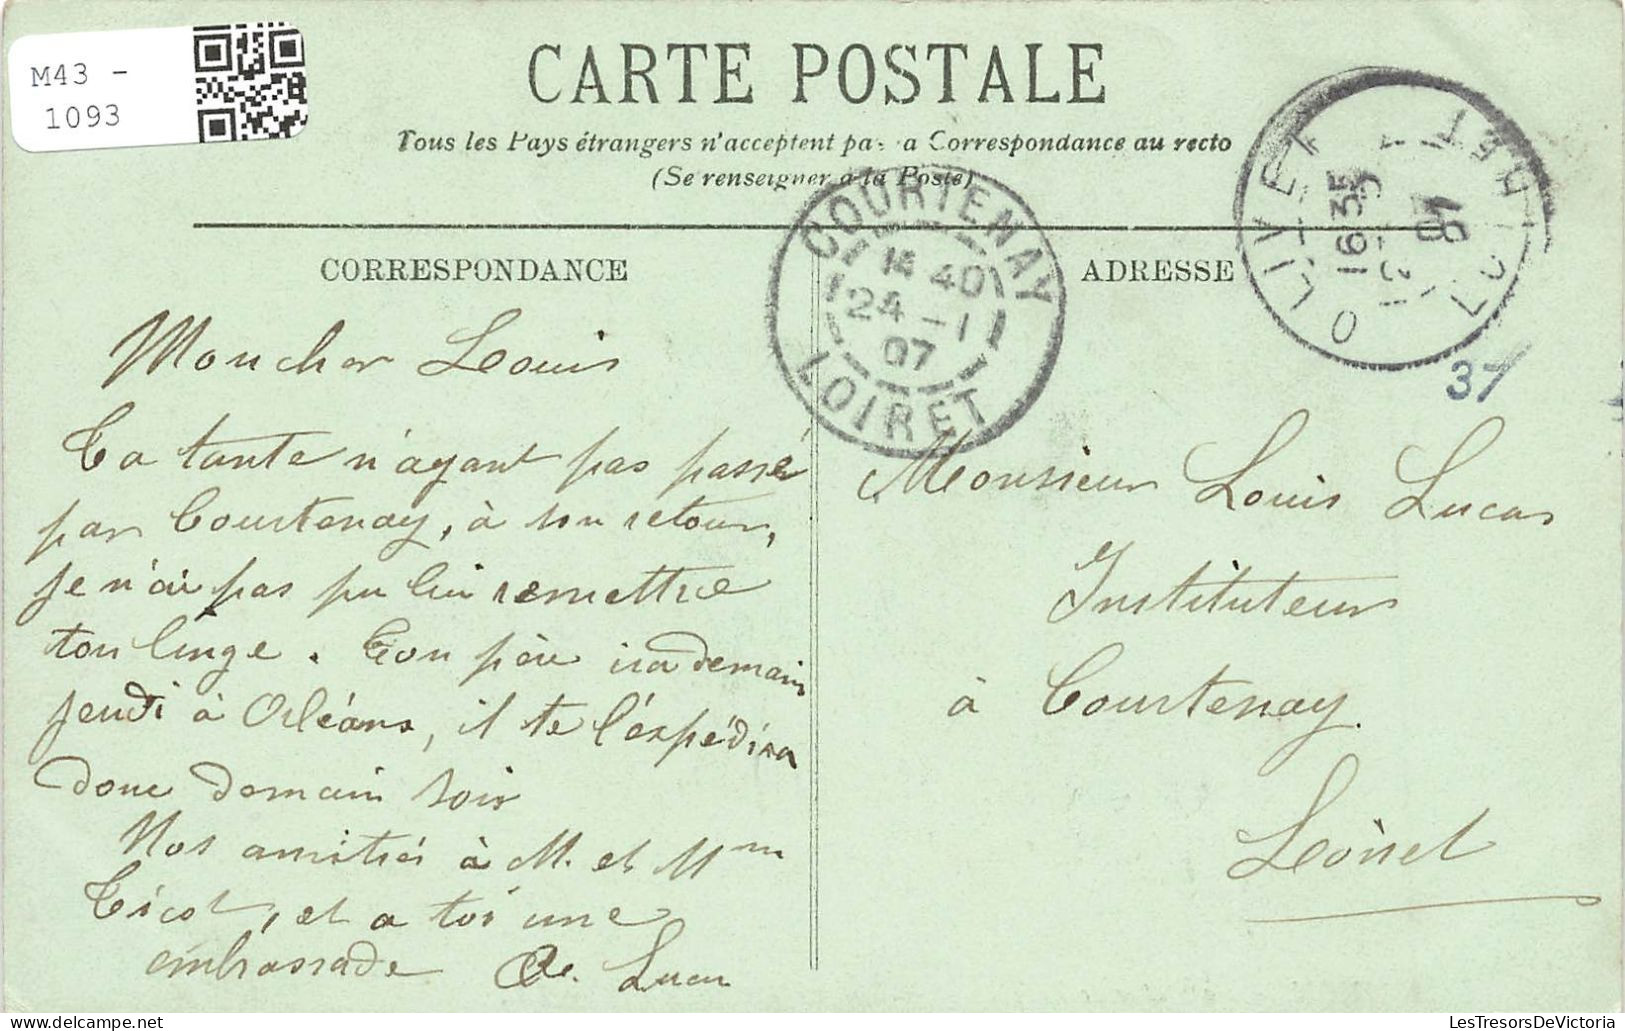 M43 -
1093
CARTE POSTALE
Tous les Pays étrangers n'acceptent pas a Correspondance au recto
(Se renseigner à la Poste)
CORRESPONDANCE
ADRESSE
COURTENAY
14 40
24 - 1
07
LOIRET
OLIVET
1635
07
LOIRET
37
Mon cher Louis
Ta tante n'ayant pas passé
par Courtenay, à son retour,
je n'ai pas pu lui remettre
ton linge. Ton père ira demain
jeudi à Orléans, il te l'expédira
donc demain soir
Nos amitiés à M. et Mme
Ticot, et a toi une
embrassade Lucas
Monsieur Louis Lucas
Instituteur
à Courtenay
Loiret
LesTresorsDeVictoria